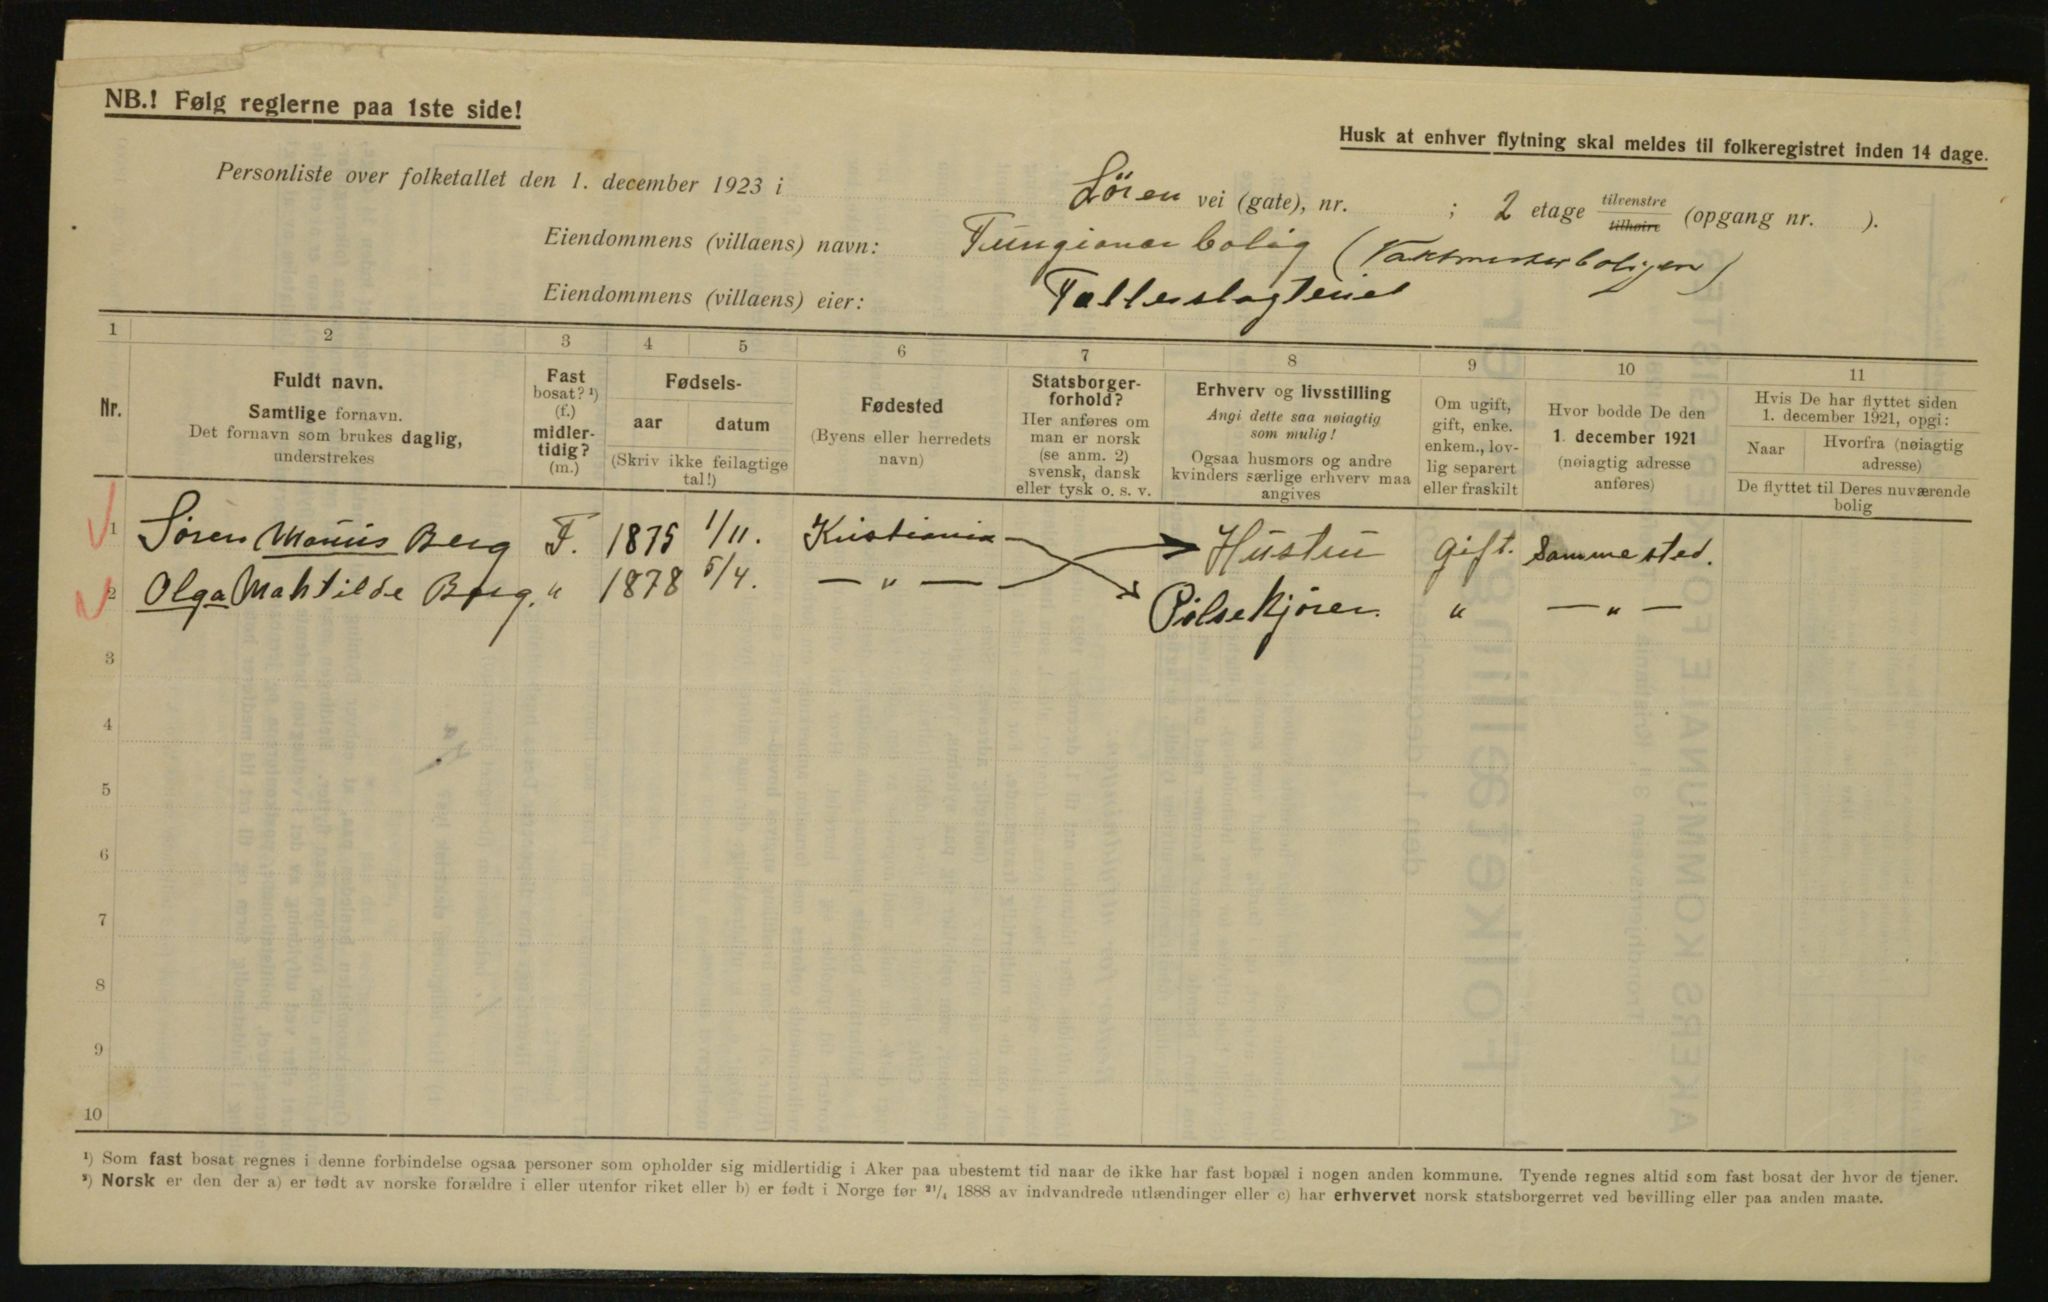 NB.! Følg reglerne paa 1ste side!
Husk at enhver flytning skal meldes til folkeregistret inden 14 dage.
Personliste over folketallet den 1. december 1923 i Lören vei (gate), nr. ; 2 etage tilvenstre tilhøire (opgang nr. ).
Eiendommens (villaens) navn: Fungionær bolig (Vaktmesterboligen)
Eiendommens (villaens) eier: Fellesslagteriet
1 2 3 4 5 6 7 8 9 10 11
Nr.
Fuldt navn.
Samtlige fornavn.
Det fornavn som brukes daglig,
understrekes
Fast
bosat? ¹)
(f.)
midler-
tidig?
(m.)
Fødsels-
aar datum
(Skriv ikke feilagtige
tal!)
Fødested
(Byens eller herredets
navn)
Statsborger-
forhold?
Her anføres om
man er norsk
(se anm. 2)
svensk, dansk
eller tysk o. s. v.
Erhverv og livsstilling
Angi dette saa nøiagtig
som mulig!
Ogsaa husmors og andre
kvinders særlige erhverv maa
angives
Om ugift,
gift, enke.
enkem., lov-
lig separert
eller fraskilt
Hvor bodde De den
1. december 1921
(nøiagtig adresse
anføres)
Hvis De har flyttet siden
1. december 1921, opgi:
Naar Hvorfra (nøiagtig
adresse)
De flyttet til Deres nuværende
bolig
1 Sören Marius Berg F. 1875 1/11. Kristiania Hustru Gift. Samme sted.
2 Olga Mahtilde Berg. " 1878 5/4. — " — Pölsekjörer. " — " —
3
4
5
6
7
8
9
10
¹) Som fast bosat regnes i denne forbindelse ogsaa personer som opholder sig midlertidig i Aker paa ubestemt tid naar de ikke har fast bopæl i nogen anden kommune. Tyende regnes altid som fast bosat der hvor de tjener.
²) Norsk er den der a) er født av norske forældre i eller utenfor riket eller b) er født i Norge før ²¹/₄ 1888 av indvandrede utlændinger eller c) har erhvervet norsk statsborgerret ved bevilling eller paa anden maate.